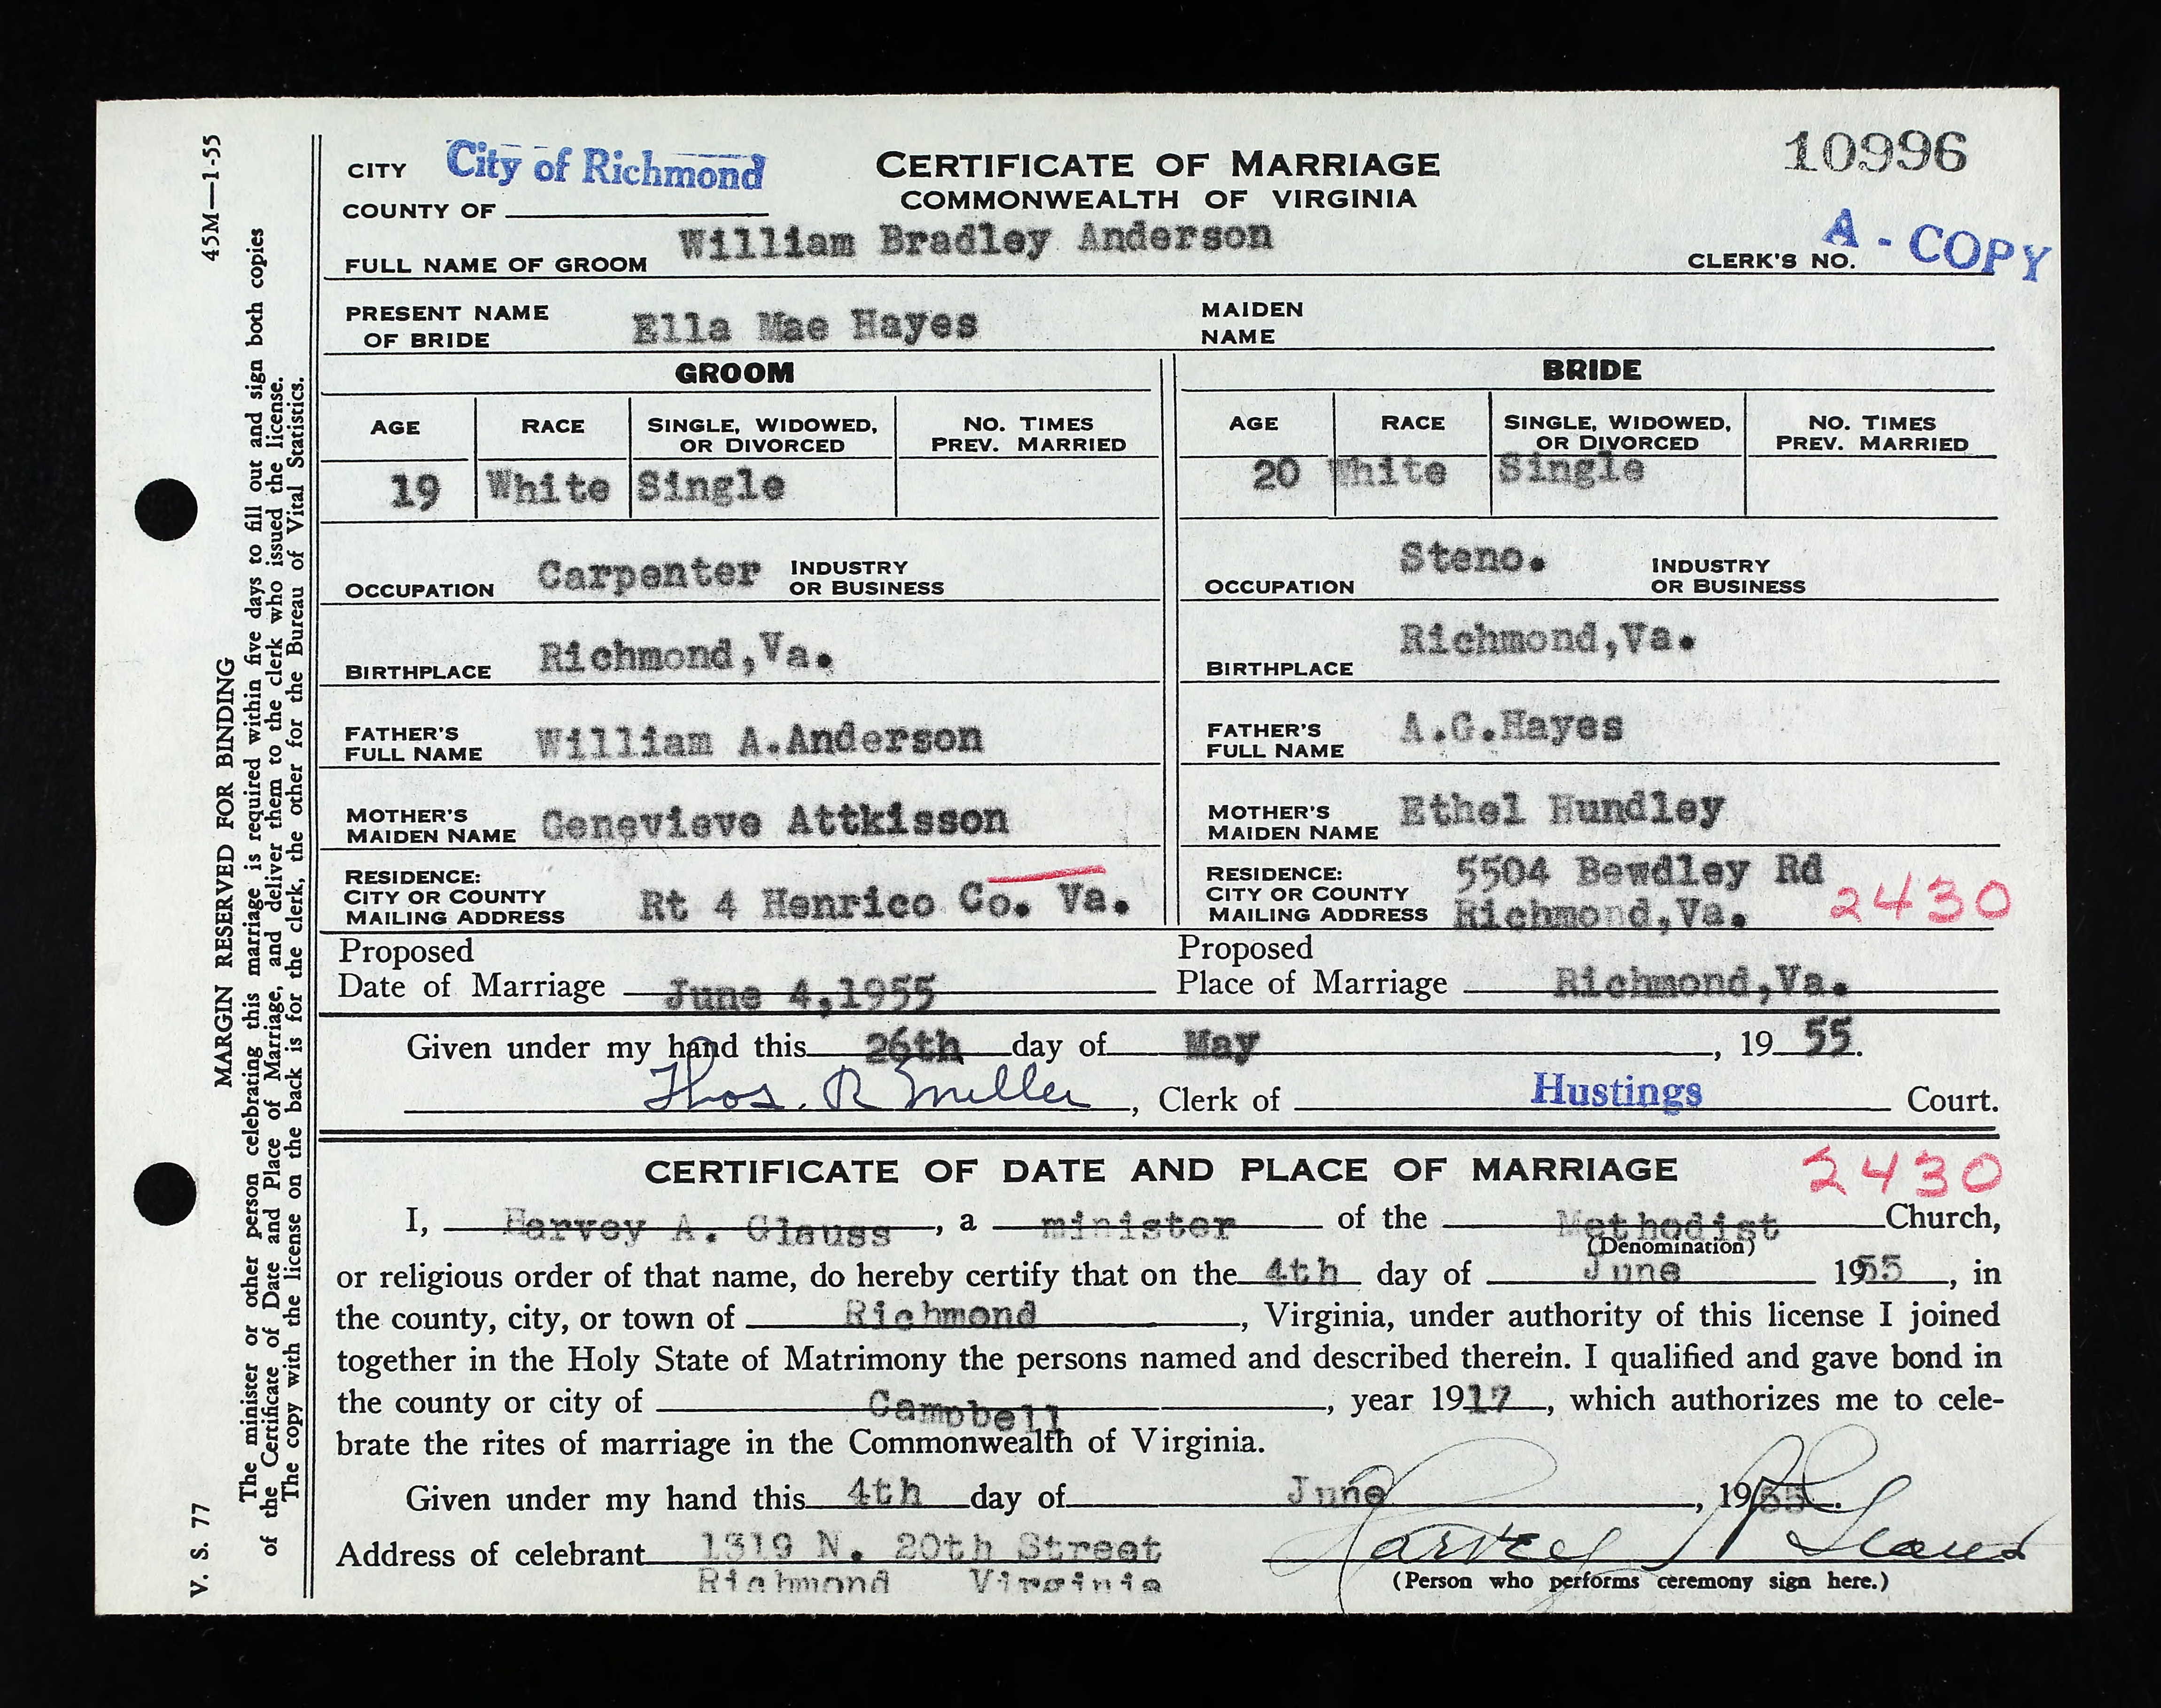 45M—1-55
MARGIN RESERVED FOR BINDING
The minister or other person celebrating this marriage is required within five days to fill out and sign both copies
of the Certificate of Date and Place of Marriage, and deliver them to the clerk who issued the license.
The copy with the license on the back is for the clerk, the other for the Bureau of Vital Statistics.
V. S. 77
CITY City of Richmond
COUNTY OF
CERTIFICATE OF MARRIAGE
COMMONWEALTH OF VIRGINIA
10996
FULL NAME OF GROOM William Bradley Anderson
CLERK'S NO. A - COPY
PRESENT NAME OF BRIDE Ella Mae Hayes
MAIDEN NAME
GROOM
AGE RACE SINGLE, WIDOWED, OR DIVORCED NO. TIMES PREV. MARRIED
19 White Single
OCCUPATION Carpenter INDUSTRY OR BUSINESS
BIRTHPLACE Richmond,Va.
FATHER'S FULL NAME William A.Anderson
MOTHER'S MAIDEN NAME Genevieve Attkisson
RESIDENCE:
CITY OR COUNTY
MAILING ADDRESS Rt 4 Henrico Co. Va.
BRIDE
AGE RACE SINGLE, WIDOWED, OR DIVORCED NO. TIMES PREV. MARRIED
20 White Single
OCCUPATION Steno. INDUSTRY OR BUSINESS
BIRTHPLACE Richmond,Va.
FATHER'S FULL NAME A.G.Hayes
MOTHER'S MAIDEN NAME Ethel Hundley
RESIDENCE: 5504 Bewdley Rd
CITY OR COUNTY
MAILING ADDRESS Richmond,Va. 2430
Proposed
Date of Marriage June 4,1955
Proposed
Place of Marriage Richmond,Va.
Given under my hand this 26th day of May, 19 55.
Thos. R Miller, Clerk of Hustings Court.
CERTIFICATE OF DATE AND PLACE OF MARRIAGE 2430
I, Harvey A. Glauss, a minister of the Methodist Church,
(Denomination)
or religious order of that name, do hereby certify that on the 4th day of June 1955, in
the county, city, or town of Richmond, Virginia, under authority of this license I joined
together in the Holy State of Matrimony the persons named and described therein. I qualified and gave bond in
the county or city of Campbell, year 1917, which authorizes me to cele-
brate the rites of marriage in the Commonwealth of Virginia.
Given under my hand this 4th day of June, 1955.
Address of celebrant 1319 N. 20th Street
Richmond Virginia
Harvey A Glauss
(Person who performs ceremony sign here.)